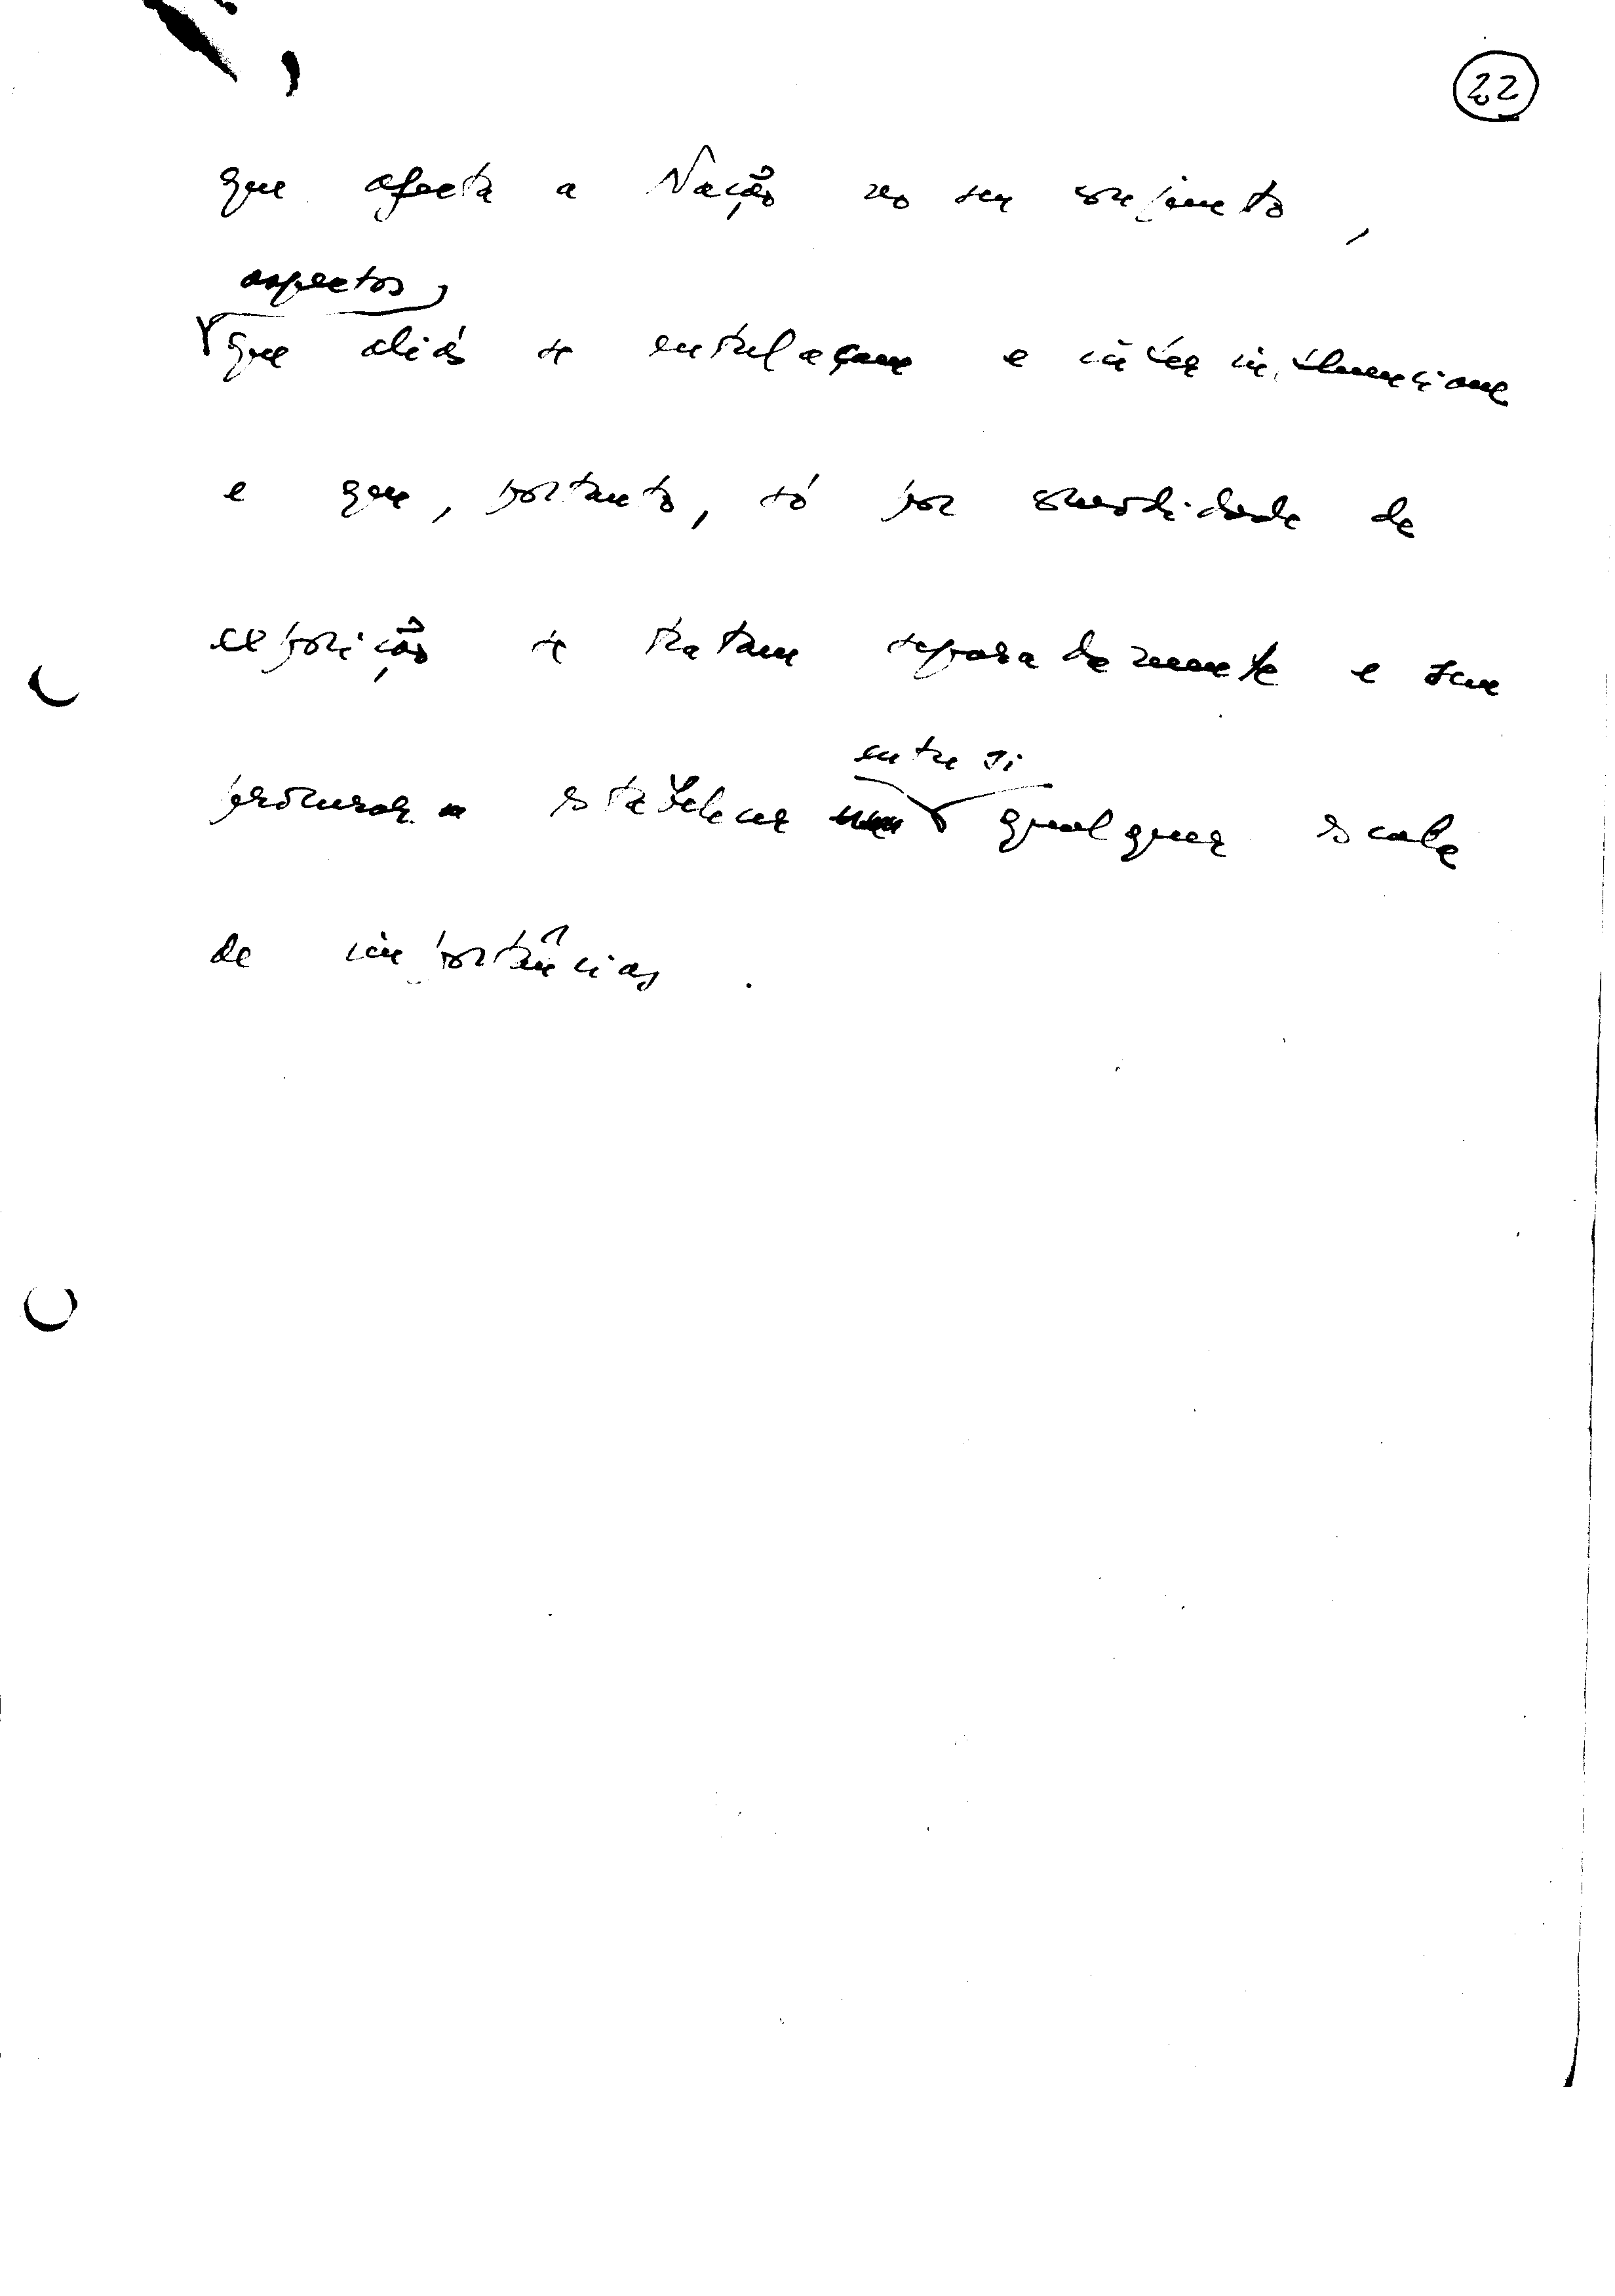 22
que afecta a Nação no seu conjunto,
aspectos,
que aliás se entrelaçam e inter influenciam
e que, portanto, só por comodidade de
exposição se tratam separadamente e sem
procurar estabelecer qualquer escala
entre si
de importâncias.